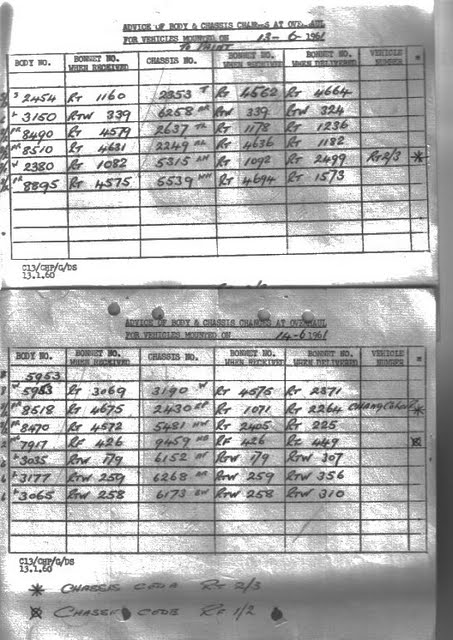 ADVICE OF BODY & CHASSIS CHANGES AT OVERHAUL
FOR VEHICLES MOUNTED ON 13-6-1961
TO PAINT
BODY NO. BONNET NO. WHEN RECEIVED CHASSIS NO. BONNET NO. WHEN RECEIVED BONNET NO. WHEN DELIVERED VEHICLE NUMBER
2454 RT 1160 2353 RT 4562 RT 4664
3150 RTW 339 6258 RTW 339 RTW 324
8490 RT 4579 2637 RT 1178 RT 1236
8510 RT 4631 2249 RT 4636 RT 1182
2380 RT 1082 5315 RT 1092 RT 2499 RT2/3 *
8895 RT 4575 5539 RT 4694 RT 1573
C13/CHP/G/DS
13.1.60
ADVICE OF BODY & CHASSIS CHANGES AT OVERHAUL
FOR VEHICLES MOUNTED ON 14-6-1961
BODY NO. BONNET NO. WHEN RECEIVED CHASSIS NO. BONNET NO. WHEN RECEIVED BONNET NO. WHEN DELIVERED VEHICLE NUMBER
5953
5953 RT 3069 3190 W RT 4575 RT 2371
8518 RT 4675 2430 RT 1071 RT 2264 *
8470 RT 4572 5481 RT 2405 RT 225
7917 RF 426 9459 RF 426 RF 449
3035 RTW 179 6152 RTW 179 RTW 307
3177 RTW 259 6268 RTW 259 RTW 356
3065 RTW 258 6173 RTW 258 RTW 310
C13/CHP/G/DS
13.1.60
* CHASSIS RT 2/3
RF 1/2